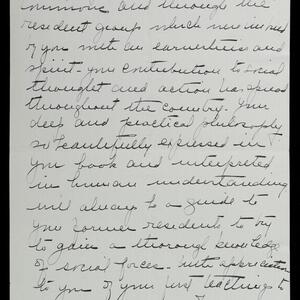 and through the
resident group which
of you with an earnestness and
spirit - your contribution to social
thought and action has spread
throughout the country. Your
deep and practical philosophy
so beautifully expressed in
your book and interpreted
in human understanding
will always be a guide to
your former residents to try
to gain a thorough knowledge
of social forces. With appreciation
to you of your teachings to